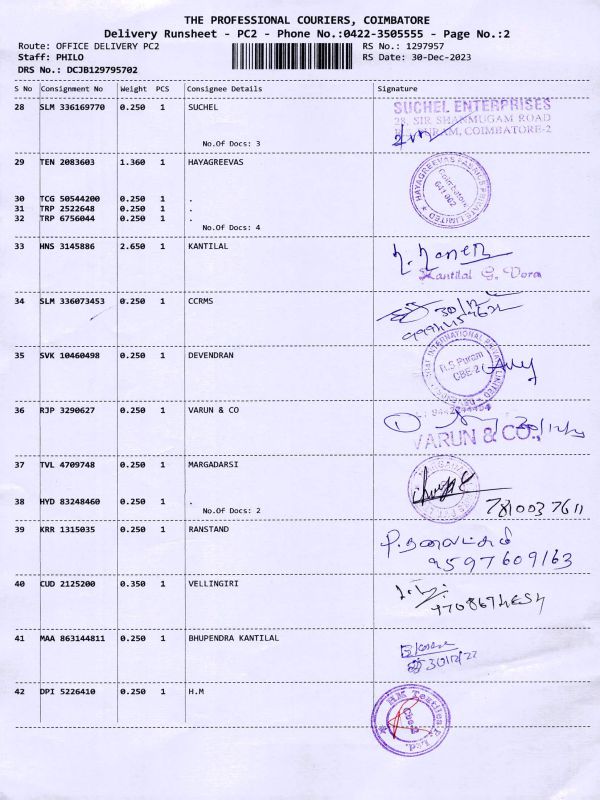 THE PROFESSIONAL COURIERS, COIMBATORE
Delivery Runsheet - PC2 - Phone No.:0422-3505555 - Page No.:2
Route: OFFICE DELIVERY PC2 RS No.: 1297957
Staff: PHILO RS Date: 30-Dec-2023
DRS No.: DCJB129795702
S No Consignment No Weight PCS Consignee Details Signature
28 SLM 336169770 0.250 1 SUCHEL
SUCHEL ENTERPRISES
28, SIR SHANMUGAM ROAD
COIMBATORE-2
No.Of Docs: 3
29 TEN 2083603 1.360 1 HAYAGREEVAS
HAYAGREEVAS FABRICS PRIVATE LIMITED
Coimbatore
641 002
30 TCG 50544200 0.250 1 .
31 TRP 2522648 0.250 1 .
32 TRP 6756044 0.250 1 .
No.Of Docs: 4
33 HNS 3145886 2.650 1 KANTILAL
Kantilal G. Vora
34 SLM 336073453 0.250 1 CCRMS
35 SVK 10460498 0.250 1 DEVENDRAN
INTERNATIONAL PRIVATE LIMITED
R.S Puram
CBE-2
36 RJP 3290627 0.250 1 VARUN & CO
VARUN & CO.,
37 TVL 4709748 0.250 1 MARGADARSI
38 HYD 83248460 0.250 1 .
No.Of Docs: 2
7810037611
39 KRR 1315035 0.250 1 RANSTAND
9597609163
40 CUD 2125200 0.350 1 VELLINGIRI
41 MAA 863144811 0.250 1 BHUPENDRA KANTILAL
42 DPI 5226410 0.250 1 H.M